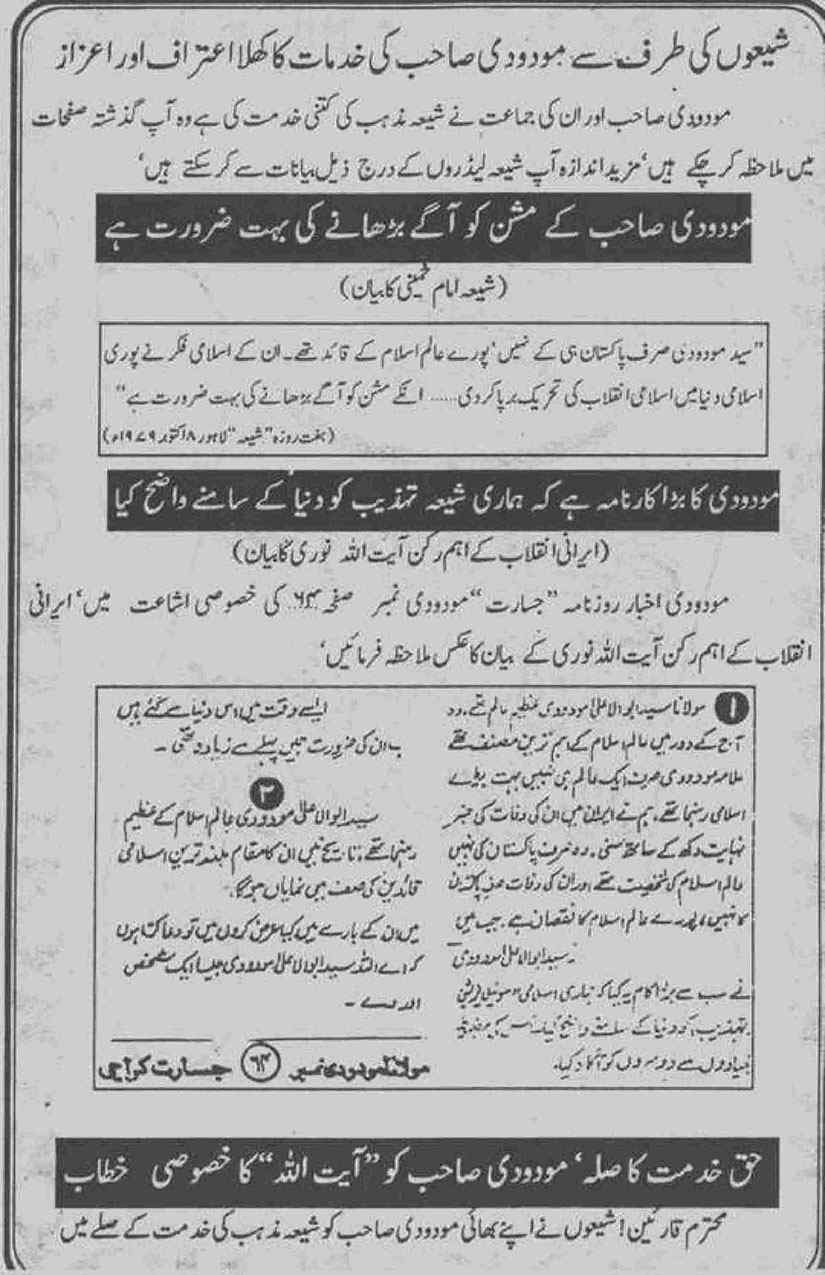 شیعوں کی طرف سے مودودی صاحب کی خدمات کا کھلا اعتراف اور اعزاز
مودودی صاحب اور ان کی جماعت نے شیعہ مذہب کی کتنی خدمت کی ہے وہ آپ گذشتہ صفحات
میں ملاحظہ کر چکے ہیں' مزید اندازہ آپ شیعہ لیڈروں کے درج ذیل بیانات سے کر سکتے ہیں'
مودودی صاحب کے مشن کو آگے بڑھانے کی بہت ضرورت ہے
(شیعہ امام خمینی کا بیان)
"سید مودودی صرف پاکستان ہی کے نہیں' پورے عالم اسلام کے قائد تھے۔ ان کے اسلامی فکر نے پوری
اسلامی دنیا میں اسلامی انقلاب کی تحریک برپا کر دی..... انکے مشن کو آگے بڑھانے کی بہت ضرورت ہے"
(ہفت روزہ "شیعہ" لاہور ۸ اکتوبر ۱۹۷۹ء)
مودودی کا بڑا کارنامہ ہے کہ ہماری شیعہ تہذیب کو دنیا کے سامنے واضح کیا
(ایرانی انقلاب کے اہم رکن آیت اللہ نوری کا بیان)
مودودی اخبار روزنامہ "جسارت" مودودی نمبر صفحہ ۶۴ کی خصوصی اشاعت میں' ایرانی
انقلاب کے اہم رکن آیت اللہ نوری کے بیان کا عکس ملاحظہ فرمائیں'
۱ مولانا سید ابوالاعلیٰ مودودی عظیم عالم تھے، وہ
آج کے دور میں عالم اسلام کے اہم ترین مصنف تھے
علامہ مودودی صرف ایک عالم ہی نہیں بہت بڑے
اسلامی رہنما تھے، ہم نے ایران میں ان کی وفات کی خبر
نہایت دکھ کے ساتھ سنی۔ وہ صرف پاکستان کی نہیں
عالم اسلام کی شخصیت تھے اور ان کی وفات صرف پاکستان
کا نہیں پورے عالم اسلام کا نقصان ہے۔
سید ابوالاعلیٰ مودودی
نے سب سے بڑا کام یہ کیا کہ ہماری اسلامی
تہذیب کو دنیا کے سامنے واضح کیا۔ اس کی مضبوط
بنیادوں سے دوسروں کو آگاہ کیا۔
ایسے وقت میں اس دنیا سے گئے ہیں
جب ان کی ضرورت ہمیں پہلے سے زیادہ تھی۔
۳
سید ابوالاعلیٰ مودودی عالم اسلام کے عظیم
رہنما تھے، تاریخ میں ان کا مقام بلند ترین اسلامی
قائدین کی صف میں نمایاں ہوگا۔
میں ان کے بارے میں کیا عرض کروں میں تو دعا کرتا ہوں
کہ اے اللہ سید ابوالاعلیٰ مودودی جیسا ایک شخص
اور دے۔
مولانا مودودی نمبر ۶۴ جسارت کراچی
حق خدمت کا صلہ' مودودی صاحب کو "آیت اللہ" کا خصوصی خطاب
محترم قارئین! شیعوں نے اپنے بھائی مودودی صاحب کو شیعہ مذہب کی خدمت کے صلے میں